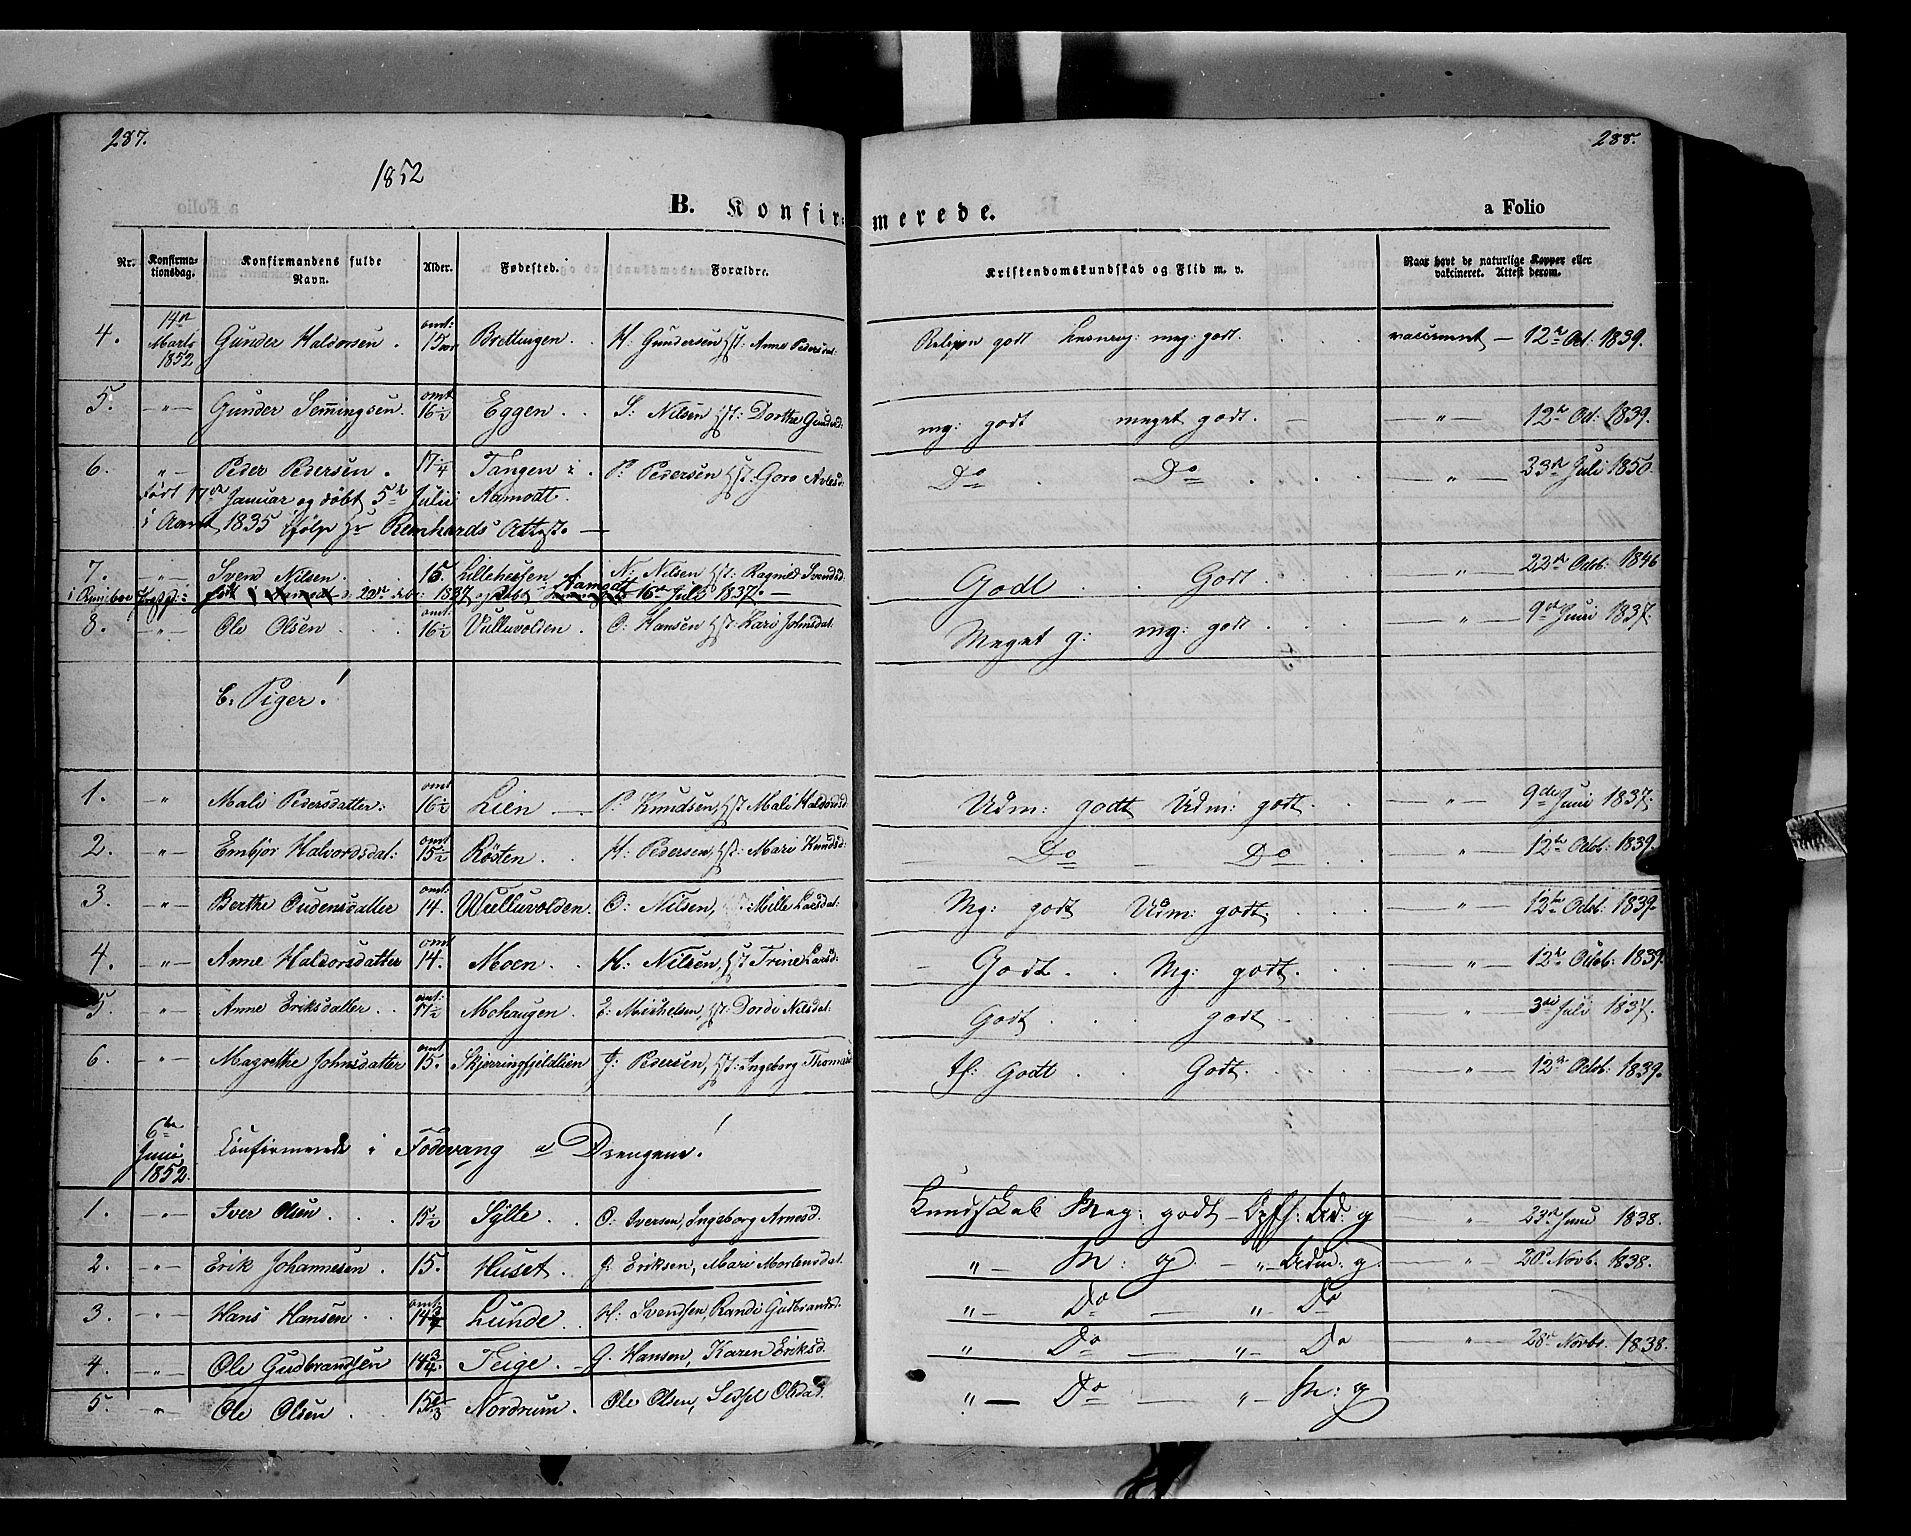 287.
288.
1852
B. Konfirmerede.
a Folio
Nr. Konfirmationsdag. Konfirmandens fulde Navn. Alder. Fødested. Forældre. Kristendomskundskab og Flid m. v. Naar havt de naturlige Kopper eller vakcineret. Attest derom.
4. 14de Marts 1852 Gunder Haldorsen. omt: 15 aar Brettingen. H. Gundersen, Hst: Anne Pedersdat: Religion godt meg: godt. vaccineret — 12te Oct: 1839.
5. —"— Gunder Semmingsen. omt 16½ Eggen. S. Nilsen Hst: Dorthe mg: godt meget godt. — —"— 12te Oct: 1839.
6. "— Peder Pedersen. 17¼ Tangen i P. Pedersen Hst: Goro Do Do —"— 23de Juli 1850.
født 17de Januar og døbt 5te Julii Aamodt.
i Aaret 1835 ifølge Hr Reinhards Attest. —
7. —"— Svend Nilsen. 15. Lillehessen N. Nilsen Hst: Ragnild Svendsd. Godt Godt. —"— 22de Octb: 1846
16de Juli 1837. —
8. —"— Ole Olsen omt 16½ Vulluvolden. O. Hansen Hst: Kari Johnsdat. Meget g: mg: godt. —"— 9de Juni 1837.
b. Piger!
1. " Mali Pedersdatter: omt 16½ Lien — P. Knudsen, Hst: Mali Haldorsd: Udm: godt Udm: godt. —"— 9de Juni 1837.
2. " Embjør Halvordsdat: omt 15½ Røsten. H. Pedersen, Hst: Mari Knudsd: Do — Do —"— 12te Octb: 1839.
3. —"— Berthe Oudensdatter omt: 14. Wulluvolden. O: Nilsen, Mille Larsdat: Mg: godt Udm: godt. —"— 12te Octb: 1839.
4. —"— Anne Haldorsdatter omt 14. Moen. H. Nilsen, Hst Trine Larsd: Godt. Mg: godt. —"— 12te Octb: 1839.
5. —"— Anne Eriksdatter. omt: 17½ Mohaugen. E. Mikkelsen, Hst: Dordi Nilsdat: Godt godt — " 3die Juli 1837.
6. —"— Magrethe Johnsdatter omt 15. Skjerringfjeldlien J. Pedersen, Hst: Ingeborg Thomasd tf: Godt Godt. —"— 12te Octb: 1839.
6te Juni 1852. Confirmerede i Fodevang a Drengene!
1. —"— Iver Olsen 15½ Sylte. O: Iversen, Ingeborg Arnesd. Kundskab Meg: godt — Opf: Ud: g " 23de Juni 1838.
2. —"— Erik Johannesen. 15. Huset. J. Eriksen, Mari Mortensdat. "— M: g. —"— Udm: g. —"— 20de Novb. 1838.
3. —"— Hans Hansen omt 14¾ Lunde. H: Svendsen, Randi Gudbrandsd. "— Do — "— Do
4. —"— Ole Gudbrandsen 14¾. Teige. G. Hansen, Karen Eriksd. " Do — "— Do " 28de Novbr 1838.
5. " Ole Olsen 15⅔ Nordrum. Ole Olsen, "— Do — "— M: g